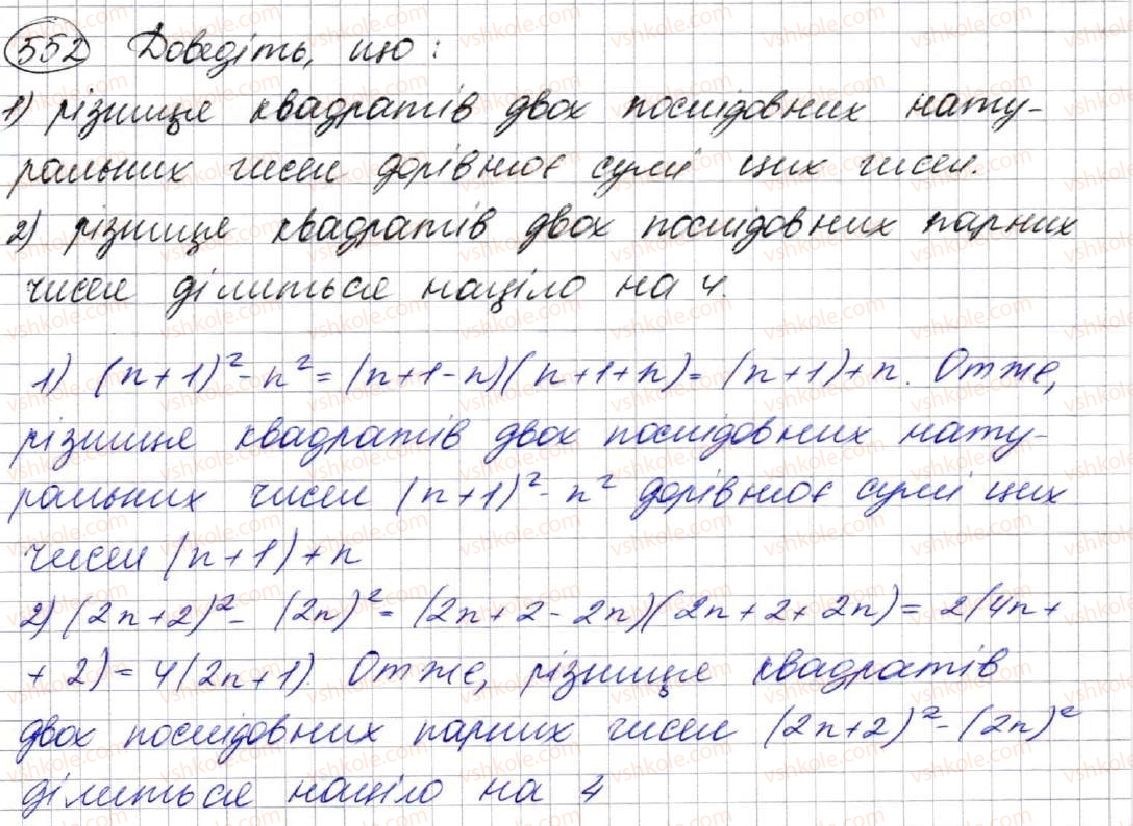 552 Доведіть, що:
1) різниця квадратів двох послідовних нату-
ральних чисел дорівнює сумі цих чисел.
2) різниця квадратів двох послідовних парних
чисел ділиться націло на 4.
1) (n+1)² - n² = (n+1-n)(n+1+n) = (n+1)+n. Отже,
різниця квадратів двох послідовних нату-
ральних чисел (n+1)² - n² дорівнює сумі цих
чисел (n+1)+n
2) (2n+2)² - (2n)² = (2n+2-2n)(2n+2+2n) = 2(4n+
+2) = 4(2n+1). Отже, різниця квадратів
двох послідовних парних чисел (2n+2)² - (2n)²
ділиться націло на 4
vshkole.com